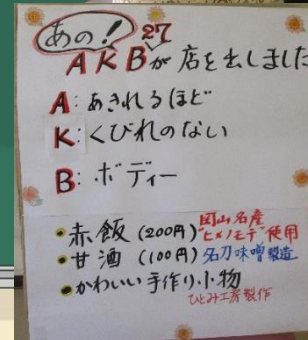 あの!
27
AKBが店を出しました
A:あきれるほど
K:くびれのない
B:ボディー
•赤飯(200円)岡山名産"ヒメノモチ"使用
•甘酒(100円)名刀味噌製造
•かわいい手作り小物
ひとみ工房製作